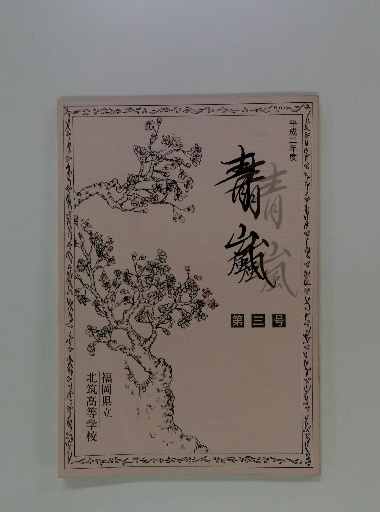 平成二年度
青嵐
第三号
福岡県立
北筑高等学校